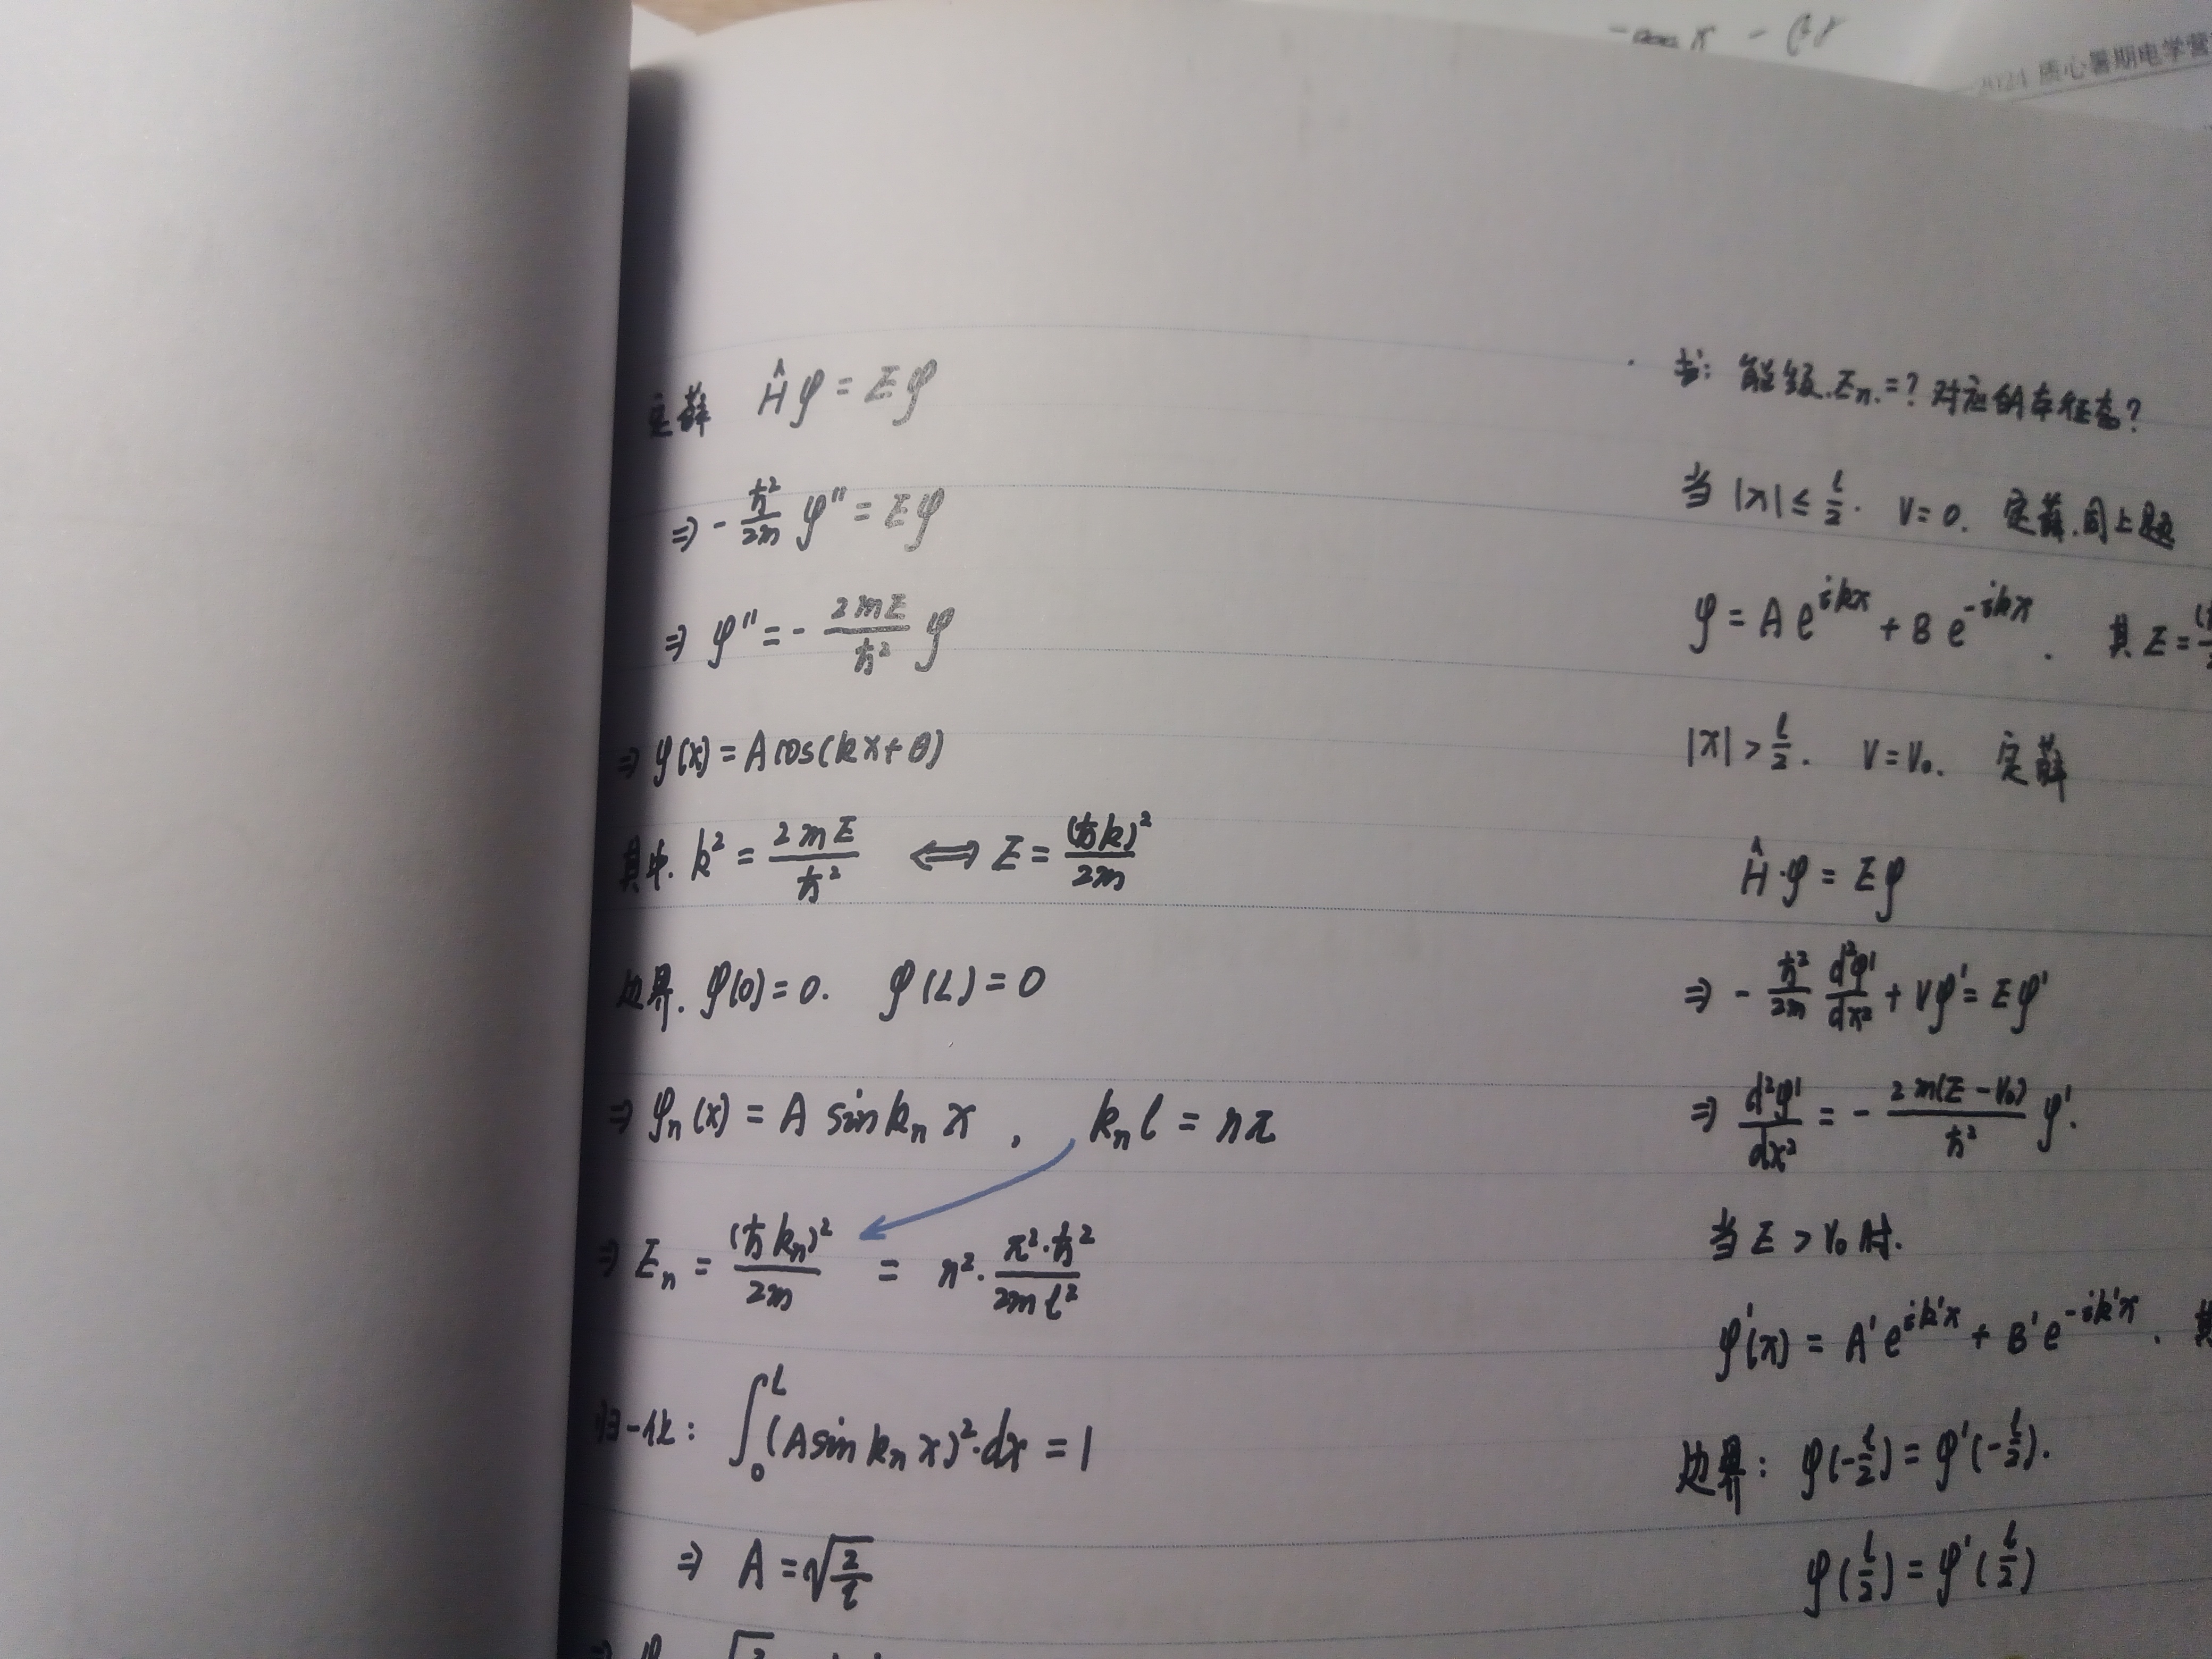 2024 质心暑期电学营
定薛 Ĥφ = Eφ
⇒ -ħ²/2m φ'' = Eφ
⇒ φ'' = - 2mE/ħ² φ
⇒ φ(x) = A cos(kx+θ)
其中. k² = 2mE/ħ² ⟺ E = (ħk)²/2m
边界. φ(0) = 0. φ(L) = 0
⇒ φₙ(x) = A sin kₙ x , kₙ l = nπ
⇒ Eₙ = (ħkₙ)²/2m = n²· π²·ħ²/2ml²
归一化: ∫₀ᴸ (A sin kₙ x)²·dx = 1
⇒ A = √(2/l)
求: 能级.Eₙ.=? 对应的本征态?
当 |x| ≤ l/2. V=0. 定薛.同上题
φ = A e^{ikx} + B e^{-ikx}. 其 E =
|x| > l/2. V=V₀. 定薛
Ĥ·φ = Eφ
⇒ - ħ²/2m d²φ'/dx² + Vφ' = Eφ'
⇒ d²φ'/dx² = - 2m(E-V₀)/ħ² φ'.
当 E > V₀ 时.
φ'(x) = A'e^{ik'x} + B'e^{-ik'x}. 其
边界: φ(-l/2) = φ'(-l/2).
φ(l/2) = φ'(l/2)